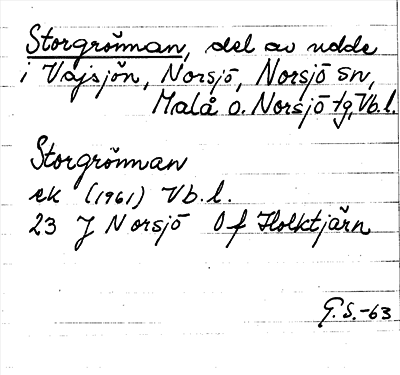 Storgrönnan, del av udde
i Vajsjön, Norsjö, Norsjö sn,
Malå o. Norsjö tg, Vb.l.
Storgrönnan
ek (1961) Vb.l.
23 J Norsjö Of Holktjärn
G.S.-63